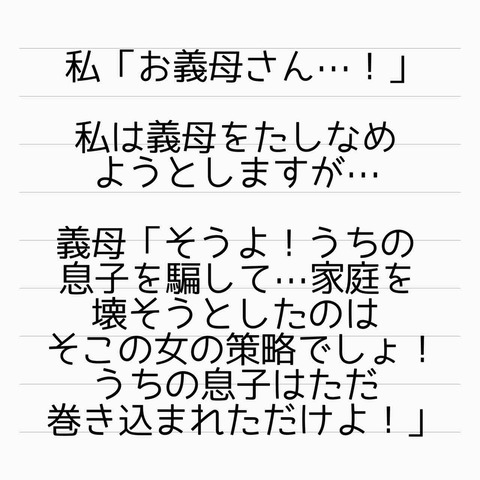 私「お義母さん…！」
私は義母をたしなめ
ようとしますが…
義母「そうよ！うちの
息子を騙して…家庭を
壊そうとしたのは
そこの女の策略でしょ！
うちの息子はただ
巻き込まれただけよ！」